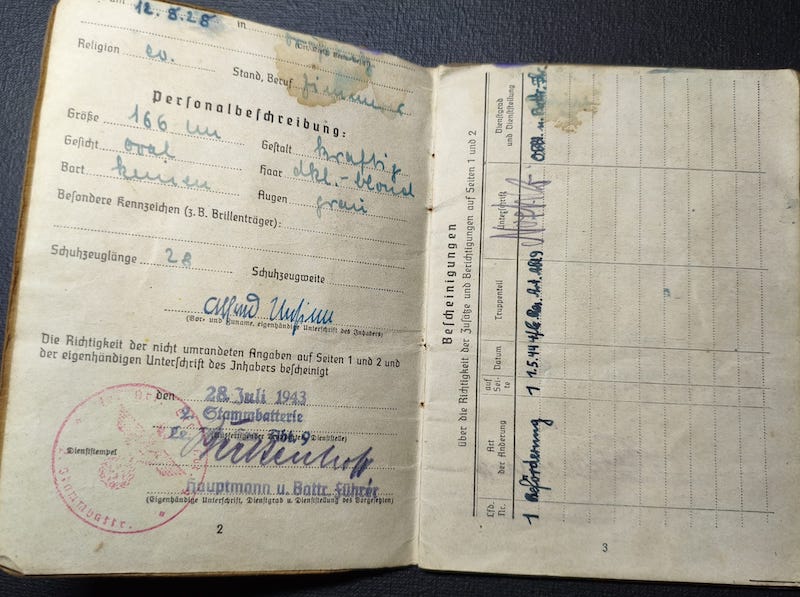 am 12.8.28 in
Religion ev.
Stand, Beruf
Personalbeschreibung:
Größe 166 cm Gestalt kräftig
Gesicht oval Haar dkl.-blond
Bart keinen Augen grau
Besondere Kennzeichen (z. B. Brillenträger):
Schuhzeuglänge 28 Schuhzeugweite
Alfred
(Vor- und Zuname, eigenhändige Unterschrift des Inhabers)
Die Richtigkeit der nicht umrandeten Angaben auf Seiten 1 und 2 und
der eigenhändigen Unterschrift des Inhabers bescheinigt
den 28. Juli 1943
2. Stammbatterie
Abt. 9 Dienststelle)
Dienststempel
Hauptmann u. Battr. Führer
(Eigenhändige Unterschrift, Dienstgrad u. Dienststellung des Vorgesetzten)
2
Bescheinigungen
über die Richtigkeit der Zusätze und Berichtigungen auf Seiten 1 und 2
Lfd. Nr. Art der Änderung auf Seite Datum Truppenteil Unterschrift Dienstgrad und Dienststellung
1 Beförderung 1 1.5.44
3